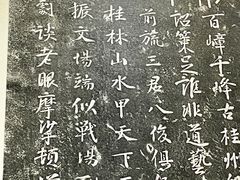 百嶂千峰古桂州
詔策足誰非道藝
前旒三君八俊俱
桂林山水甲天下
振文場端似戰場
談老眼摩挲頓